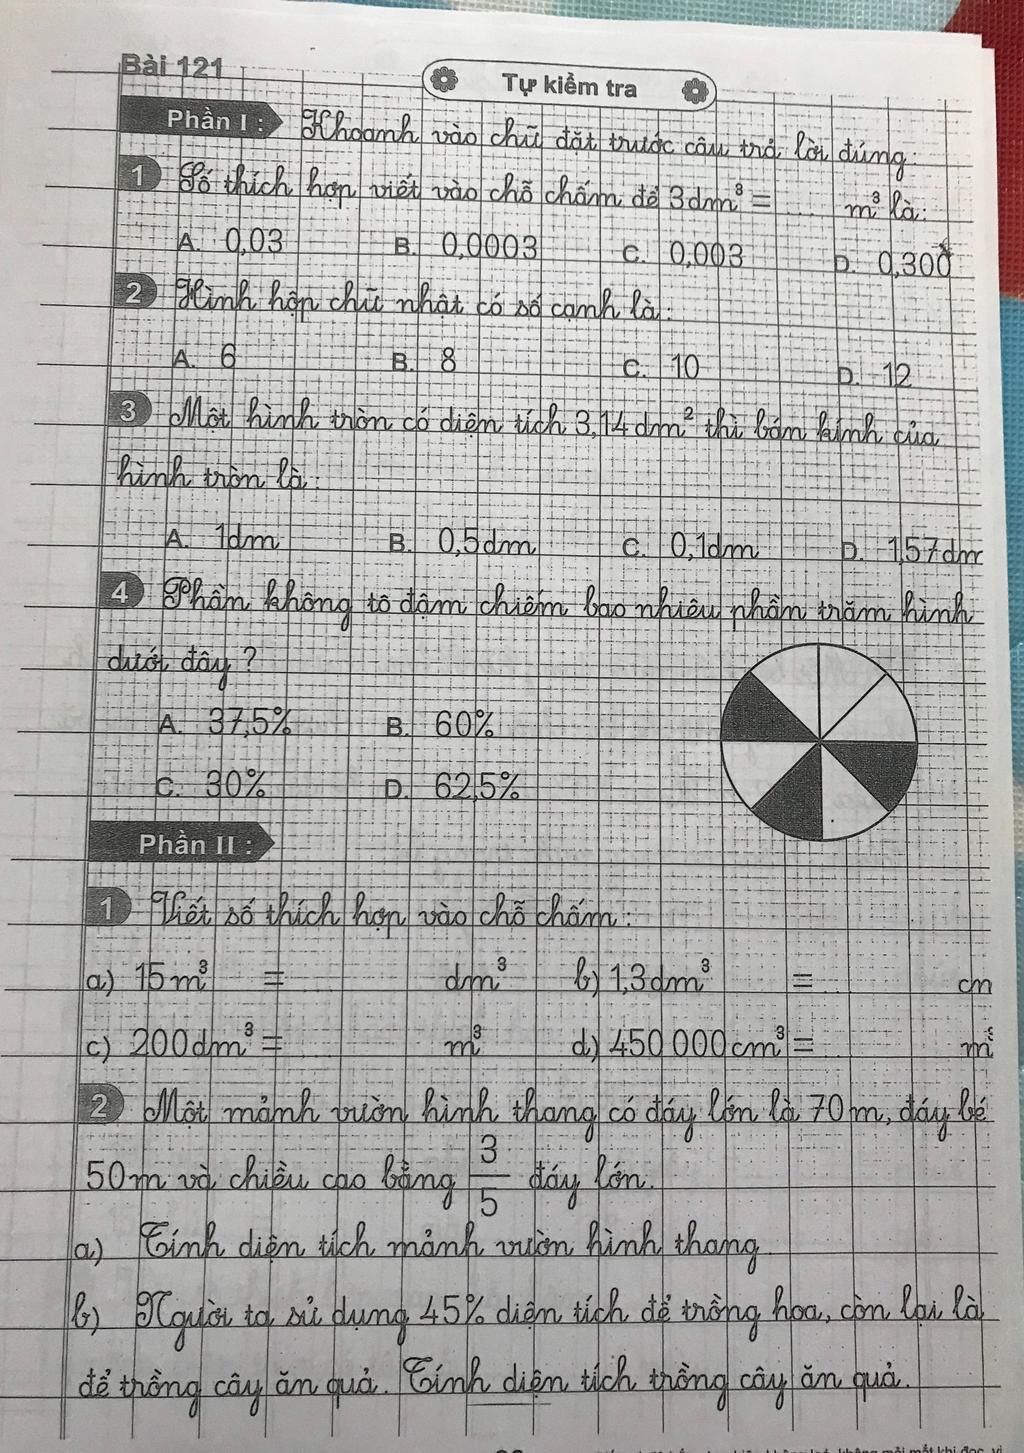 Bài 121
Tự kiểm tra
Phần I :
Khoanh vào chữ đặt trước câu trả lời đúng.
1 Số thích hợp viết vào chỗ chấm để 3dm³ = ... m³ là:
A. 0,03 B. 0,0003 C. 0,003 D. 0,300
2 Hình hộp chữ nhật có số cạnh là:
A. 6 B. 8 C. 10 D. 12
3 Một hình tròn có diện tích 3,14dm² thì bán kính của
hình tròn là:
A. 1dm B. 0,5dm C. 0,1dm D. 1,57dm
4 Phần không tô đậm chiếm bao nhiêu phần trăm hình
dưới đây ?
A. 37,5% B. 60%
C. 30% D. 62,5%
Phần II :
1 Viết số thích hợp vào chỗ chấm:
a) 15m³ = dm³ b) 1,3dm³ = cm
c) 200dm³ = m³ d) 450 000cm³ = m³
2 Một mảnh vườn hình thang có đáy lớn là 70m, đáy bé
50m và chiều cao bằng 3/5 đáy lớn.
a) Tính diện tích mảnh vườn hình thang
b) Người ta sử dụng 45% diện tích để trồng hoa, còn lại là
để trồng cây ăn quả. Tính diện tích trồng cây ăn quả.